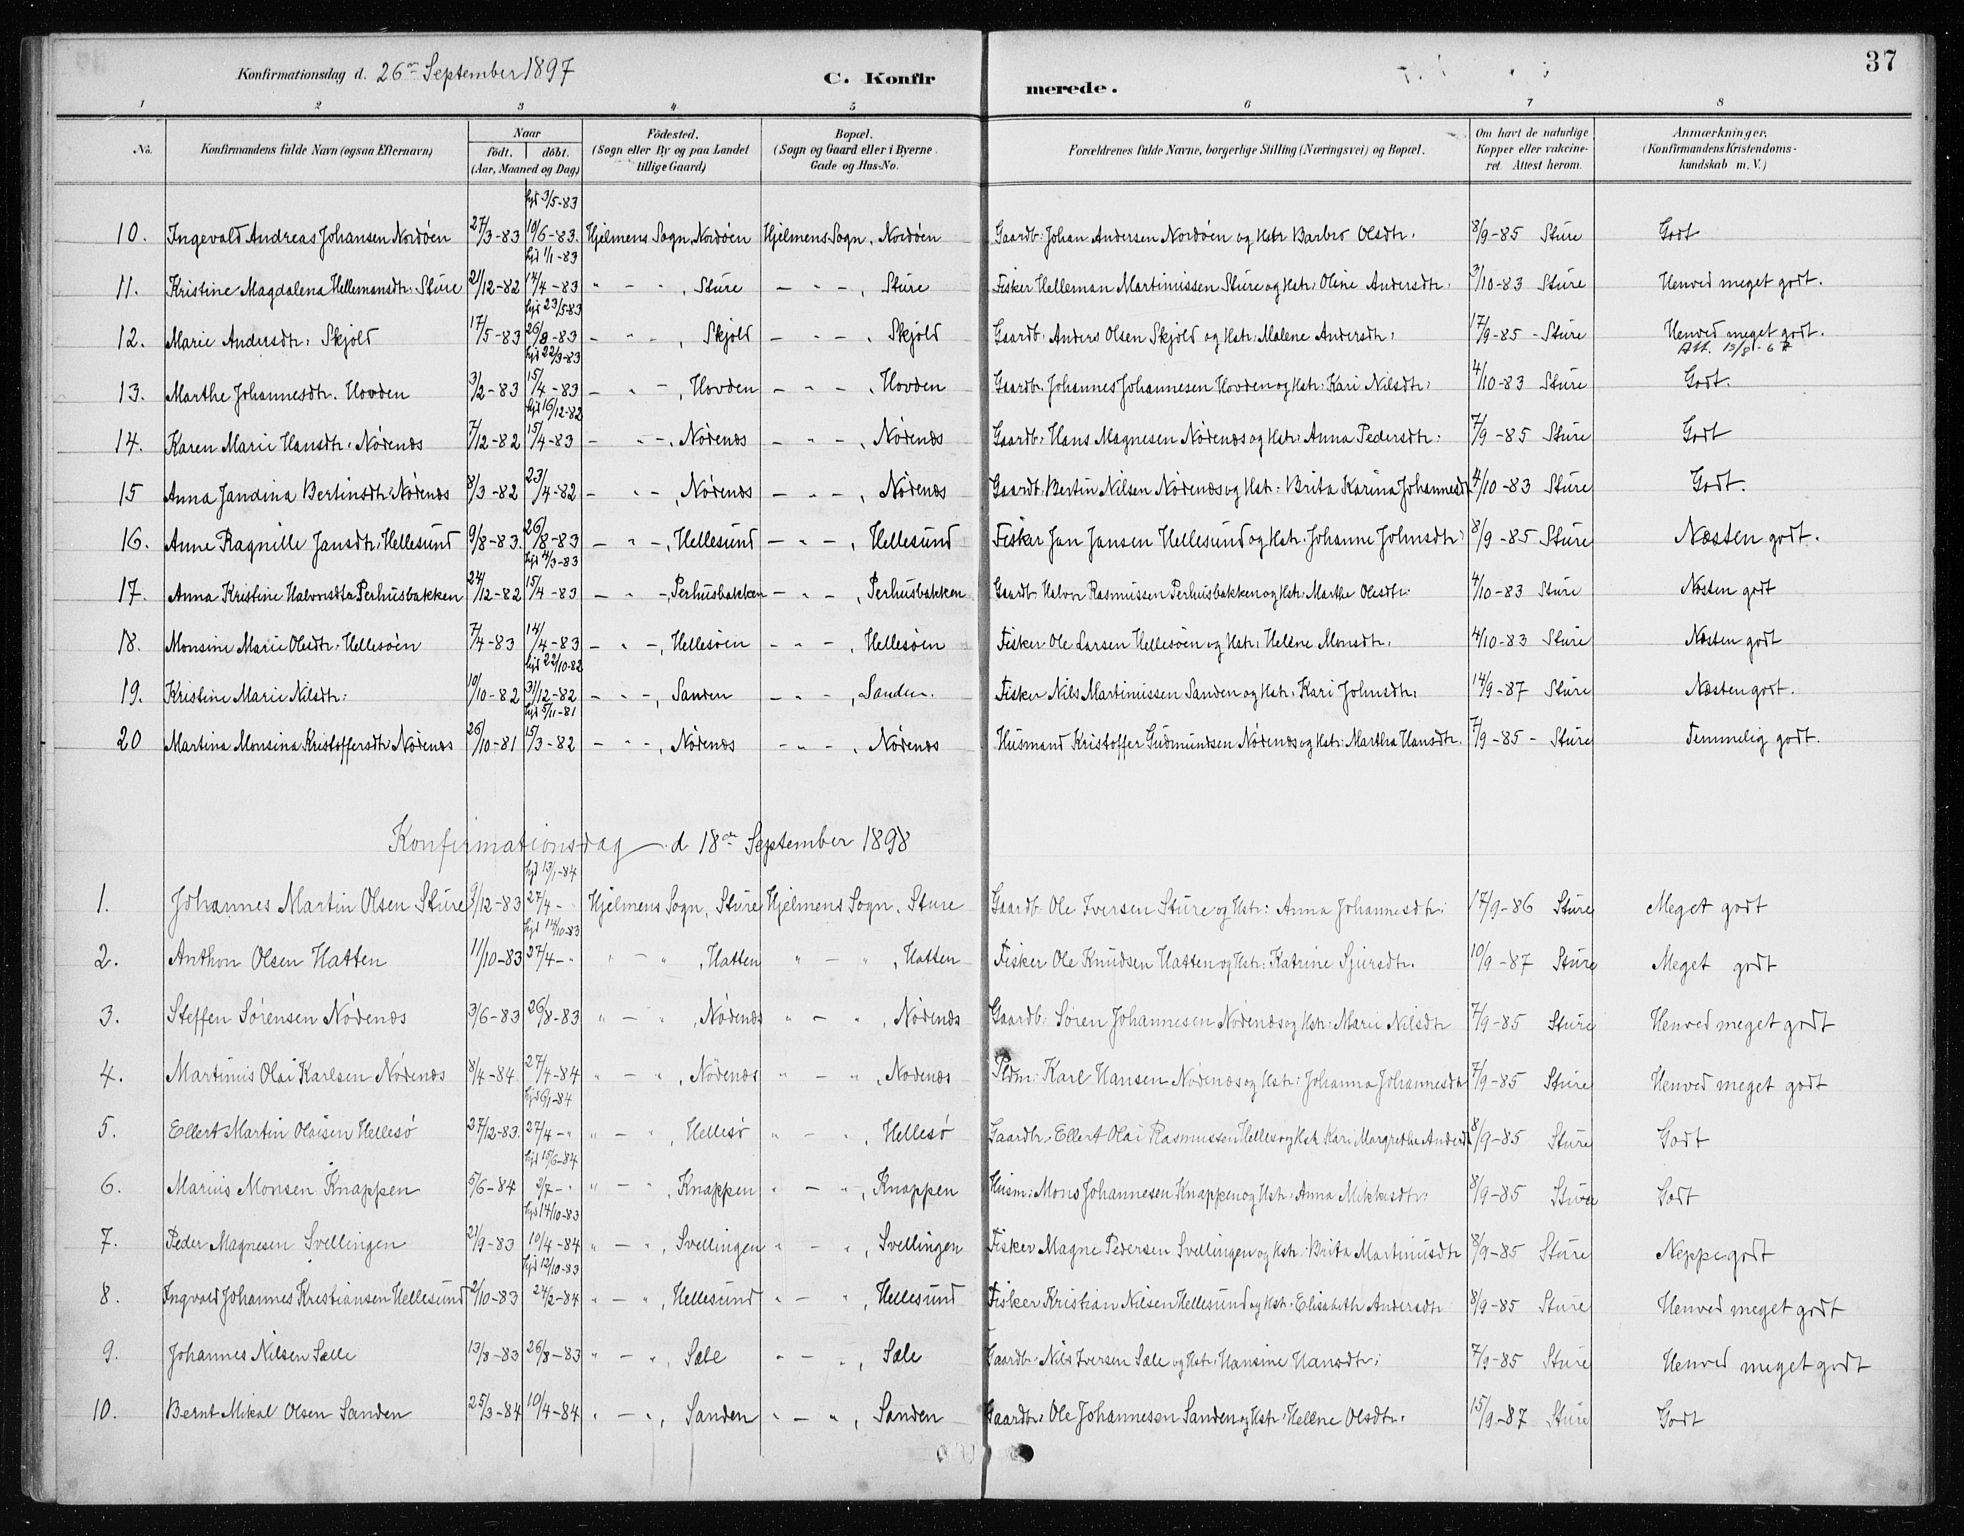 37
Konfirmationsdag d. 26de September 1897 C. Konfirmerede.
1 2 3 4 5 6 7 8
No. Konfirmandens fulde Navn (ogsaa Efternavn) Naar födt. döbt. (Aar, Maaned og Dag) Födested. (Sogn eller By og paa Landet tillige Gaard) Bopæl. (Sogn og Gaard eller i Byerne Gade og Hus-No. Forældrenes fulde Navne, borgerlige Stilling (Næringsvei) og Bopæl. Om havt de naturlige Kopper eller vakcineret. Attest herom. Anmærkninger. (Konfirmandens Kristendomskundskab m. V.)
hjd 3/5-83
10. Ingevald Andreas Johansen Nordøen 27/3-83 10/6-83. Hjelmens Sogn, Nordøen Hjelmens Sogn, Nordøen Gaardb: Johan Andersen Nordøen og Hstr Barbro Olsdtr. 8/9-85 Sture Godt
hjd 1/1-83
11. Kristine Magdalena Hellemansdtr. Sture 21/12-82 14/4-83 " - " , Sture - " - , Sture Fisker Helleman Martinussen Sture og Hstr. Oline Andersdtr. 3/10-83 Sture Henved meget godt.
hjd 23/5-83
12. Marie Andersdtr. Skjold 17/5-83 26/8-83 - " , Skjold - " - , Skjold Gaardb. Anders Olsen Skjold og Hstr. Malene Andersdtr. 17/9-85 - Sture Henved meget godt.
Att. 15/8-67
hjd 22/3-83
13. Marthe Johannesdtr. Hovden 3/2-83 15/4-83 - " - , Hovden - " - , Hovden Gaardb. Johannes Johannesen Hovden og Hstr. Kari Nilsdtr. 4/10-83 Sture Godt.
hjd 16/12-82
14. Karen Marie Hansdtr. Nødenæs 7/12-82 15/4-83 - " - , Nødenæs - " - , Nødenæs Gaardb. Hans Magnesen Nødenæs og Hstr. Anna Pedersdtr. 7/9-85 Sture Godt
15 Anna Jandina Bertinsdtr. Nødenæs 8/3-82 23/4-82 - " - , Nødenæs - " - , Nødenæs Gaardb. Bertin Nilsen Nødenæs og Hstr. Brita Karina Johannesd. 4/10-83 Sture Godt.
16. Anne Ragnille Jansdtr. Hellesund 9/8-83. 26/8-83 - " - , Hellesund - " - , Hellesund Fisker Jan Jansen Hellesund og Hstr. Johanne Johnsdtr. 8/9-85 Sture Næsten godt.
hjd 4/3-83
17. Anna Kristine Halvorsdtr Perhusbakken 24/12-82 15/4-83 - " - , Perhusbakken - " - , Perhusbakken Gaardb Halvor Rasmussen Perhusbakken og Hstr. Marthe Olesdtr. 4/10-83 Sture Næsten godt
18. Monsine Marie Olesdtr. Hellesøen 7/4-83 14/4-83 - " - , Hellesøen - " - , Hellesøen Fisker Ole Larsen Hellesøen og Hstr. Helene Monsdtr. 4/10-83 Sture Næsten godt
hjd 22/10-82
19. Kristine Marie Nilsdtr. 10/10-82 31/12-82 - " - , Sanden - " - , Sanden. Fisker Nils Martinussen Sanden og Hstr. Kari Johnsdtr. 14/9-87 Sture Næsten godt.
hjd 5/11-81
20 Martina Monsina Kristoffersdtr. Nødenæs 26/10-81 15/3-82 - " - , Nødenæs - " - , Nødenæs Husmand Kristoffer Gudmundsen Nødenæs og Hstr. Martha Hansdtr. 7/9-85 - Sture Temmelig godt.
Konfirmationsdag d 18de September 1898
hjd 13/1-84
1. Johannes Martin Olsen Sture 9/12-83 27/4- Hjelmens Sogn, Sture Hjelmens Sogn, Sture Gaardb. Ole Iversen Sture og Hstr. Anna Johannesdtr. 17/9-86 Sture Meget godt
hjd 14/10-83
2. Anthon Olsen Hatten 11/10-83 27/4-" " - " , Hatten " - " , Hatten Fisker Ole Knudsen Hatten og Hstr. Katrine Sjursdtr. 10/9-87 Sture Meget godt
3. Steffen Sørensen Nødenæs 3/6-83 26/8-83 " - " , Nødenæs " - " , Nødenæs Gaardb. Søren Johannesen Nødenæs og Hstr. Marie Nilsdtr 7/9-85 Sture Henved meget godt
4. Martinus Olai Karlsen Nødenæs 8/4-84. 27/4-84 " - " , Nødenæs " - " , Nødenæs Pldm: Karl Hansen Nødenæs og Hstr: Johanna Johannesdtr 7/9-85 Sture Henved meget godt
hjd 6/1-84
5. Ellert Martin Olaisen Hellesø 27/12-83. 27/4-" " - " , Hellesø " - " , Hellesø Gaardbr. Ellert Olai Rasmussen Hellesø og Hstr Kari Margrethe Andersd. 8/9-85 Sture Godt
hjd 15/6-84
6. Marius Monsen Knappen 5/6-84 9/7-" " - " , Knappen " - " , Knappen Husm: Mons Johannesen Knappen og Hstr: Anna Mikkesdtr. 8/9-85 Sture Godt
hjd 14/10-83
7. Peder Magnesen Svellingen 21/9-83 10/4-84 " - " , Svellingen " - " , Svellingen Fisker Magne Pedersen Svellingen og Hstr. Brita Martinusdtr 8/9-85 Sture Neppe godt
hjd 12/10-83
8. Ingvald Johannes Kristiansen Hellesund 2/10-83 24/2-84 " - " , Hellesund " - " , Hellesund Fisker Kristian Nilsen Hellesund og Hstr. Elisabeth Andersdtr 8/9-85 Sture Henved meget godt
9. Johannes Nilsen Sæle 13/8-83 26/8-83 " - " , Sæle " - " , Sæle Gaardbr. Nils Iversen Sæle og Hstr. Hansine Hansdtr. 7/9-85 Sture Henved meget godt
10. Bernt Mikal Olsen Sanden 25/3-84 10/4-84 " - " , Sanden " - " , Sanden Gaardbr. Ole Johannesen Sanden og Hstr. Helene Olsdtr. 15/9-87 Sture Godt